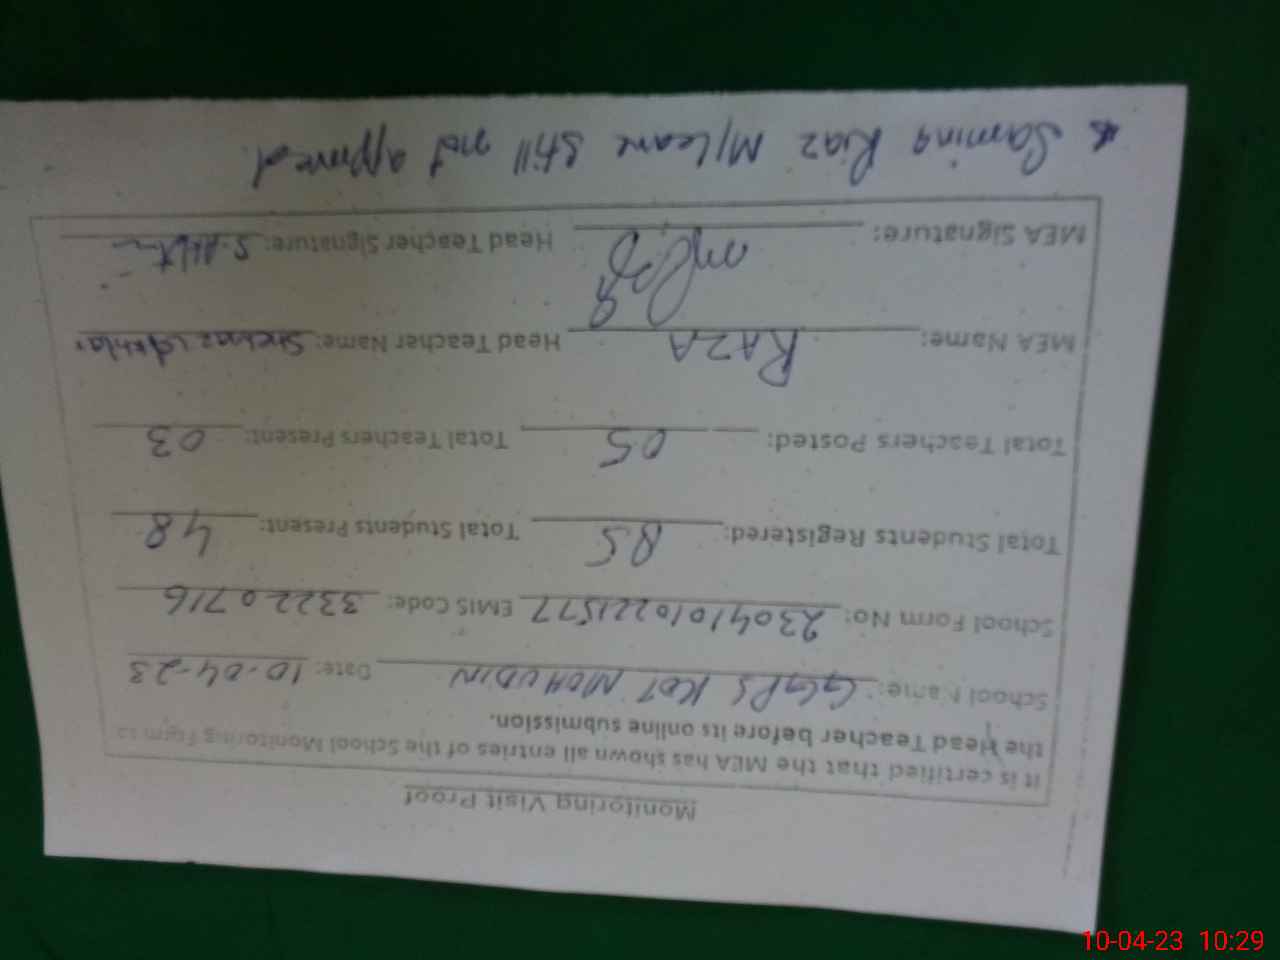 Monitoring Visit Proof
It is certified that the MEA has shown all entries of the School Monitoring Form to
the Head Teacher before its online submission.
School Name: GGPS KOT MOHUDIN Date: 10-04-23
School Form No: 23041010221577 EMIS Code: 33220716
Total Students Registered: 85 Total Students Present: 48
Total Teachers Posted: 05 Total Teachers Present: 03
MEA Name: RAZA Head Teacher Name: Shehnaz Akhtar
MEA Signature: Head Teacher Signature: S. Akhtar
Samina Riaz M/Leave still not approved.
10-04-23 10:29